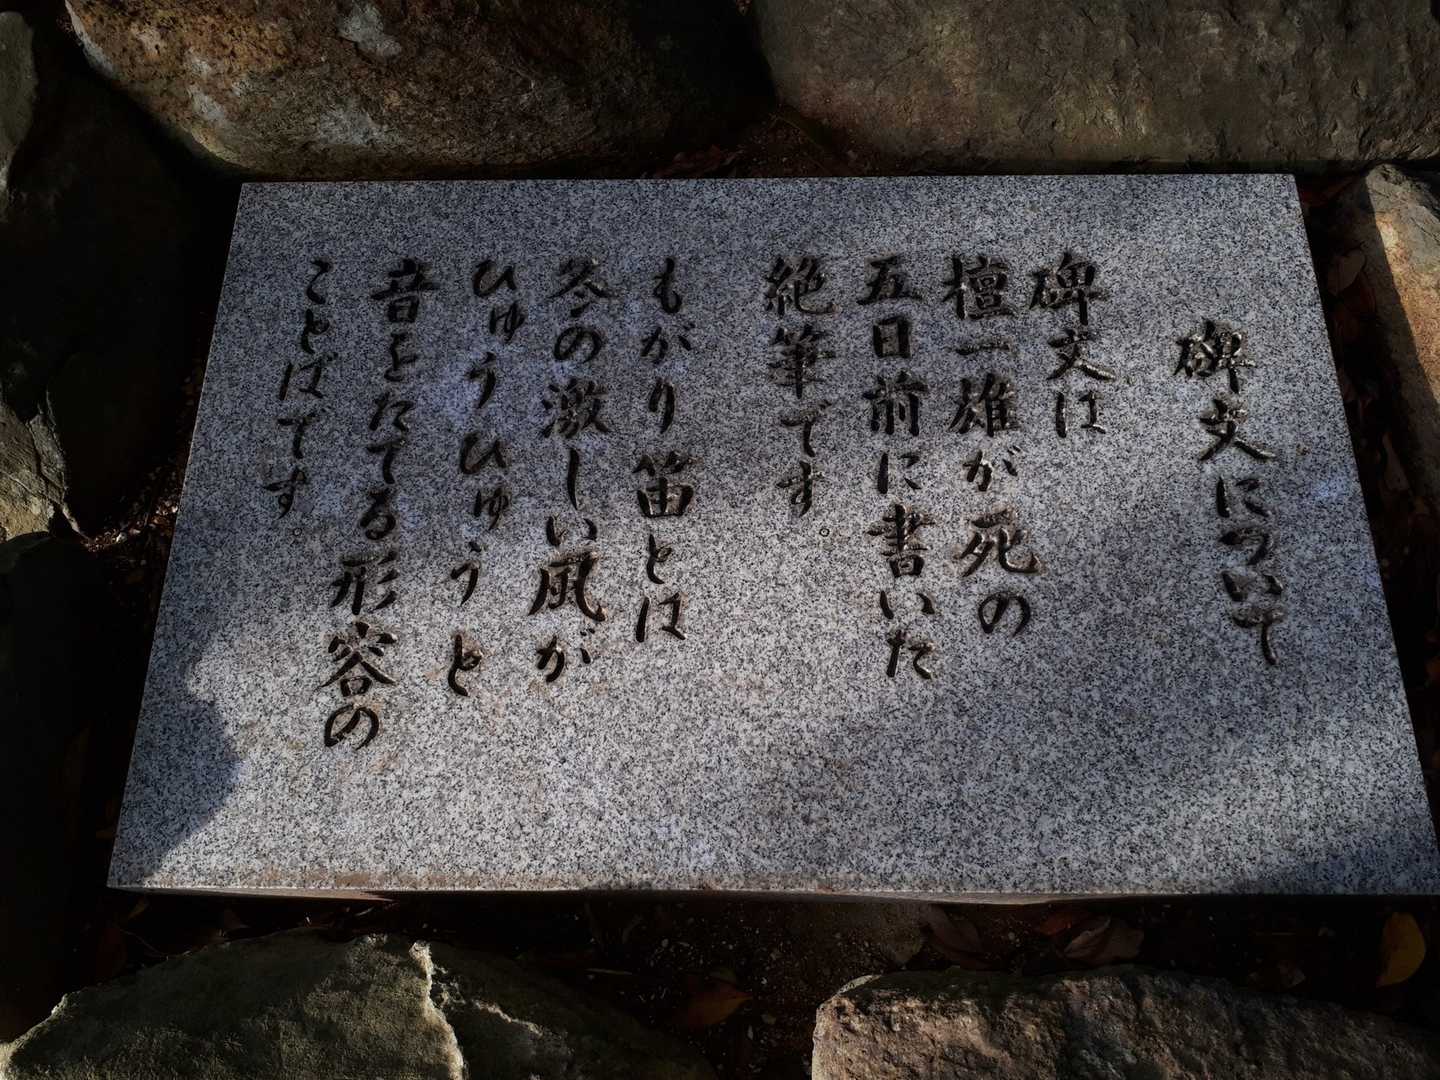 碑文について
碑文は
檀一雄が死の
五日前に書いた
絶筆です。
もがり笛とは
冬の激しい風が
ひゅうひゅうと
音をたてる形容の
ことばです。